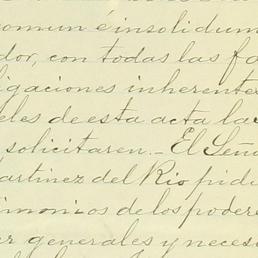 comun é insolidum
dor, con todas las fa
igaciones inherente
eles de esta acta las
solicitaren.- El Seño
artinez del Rio pidi
imonios de los podere
er generales y neces